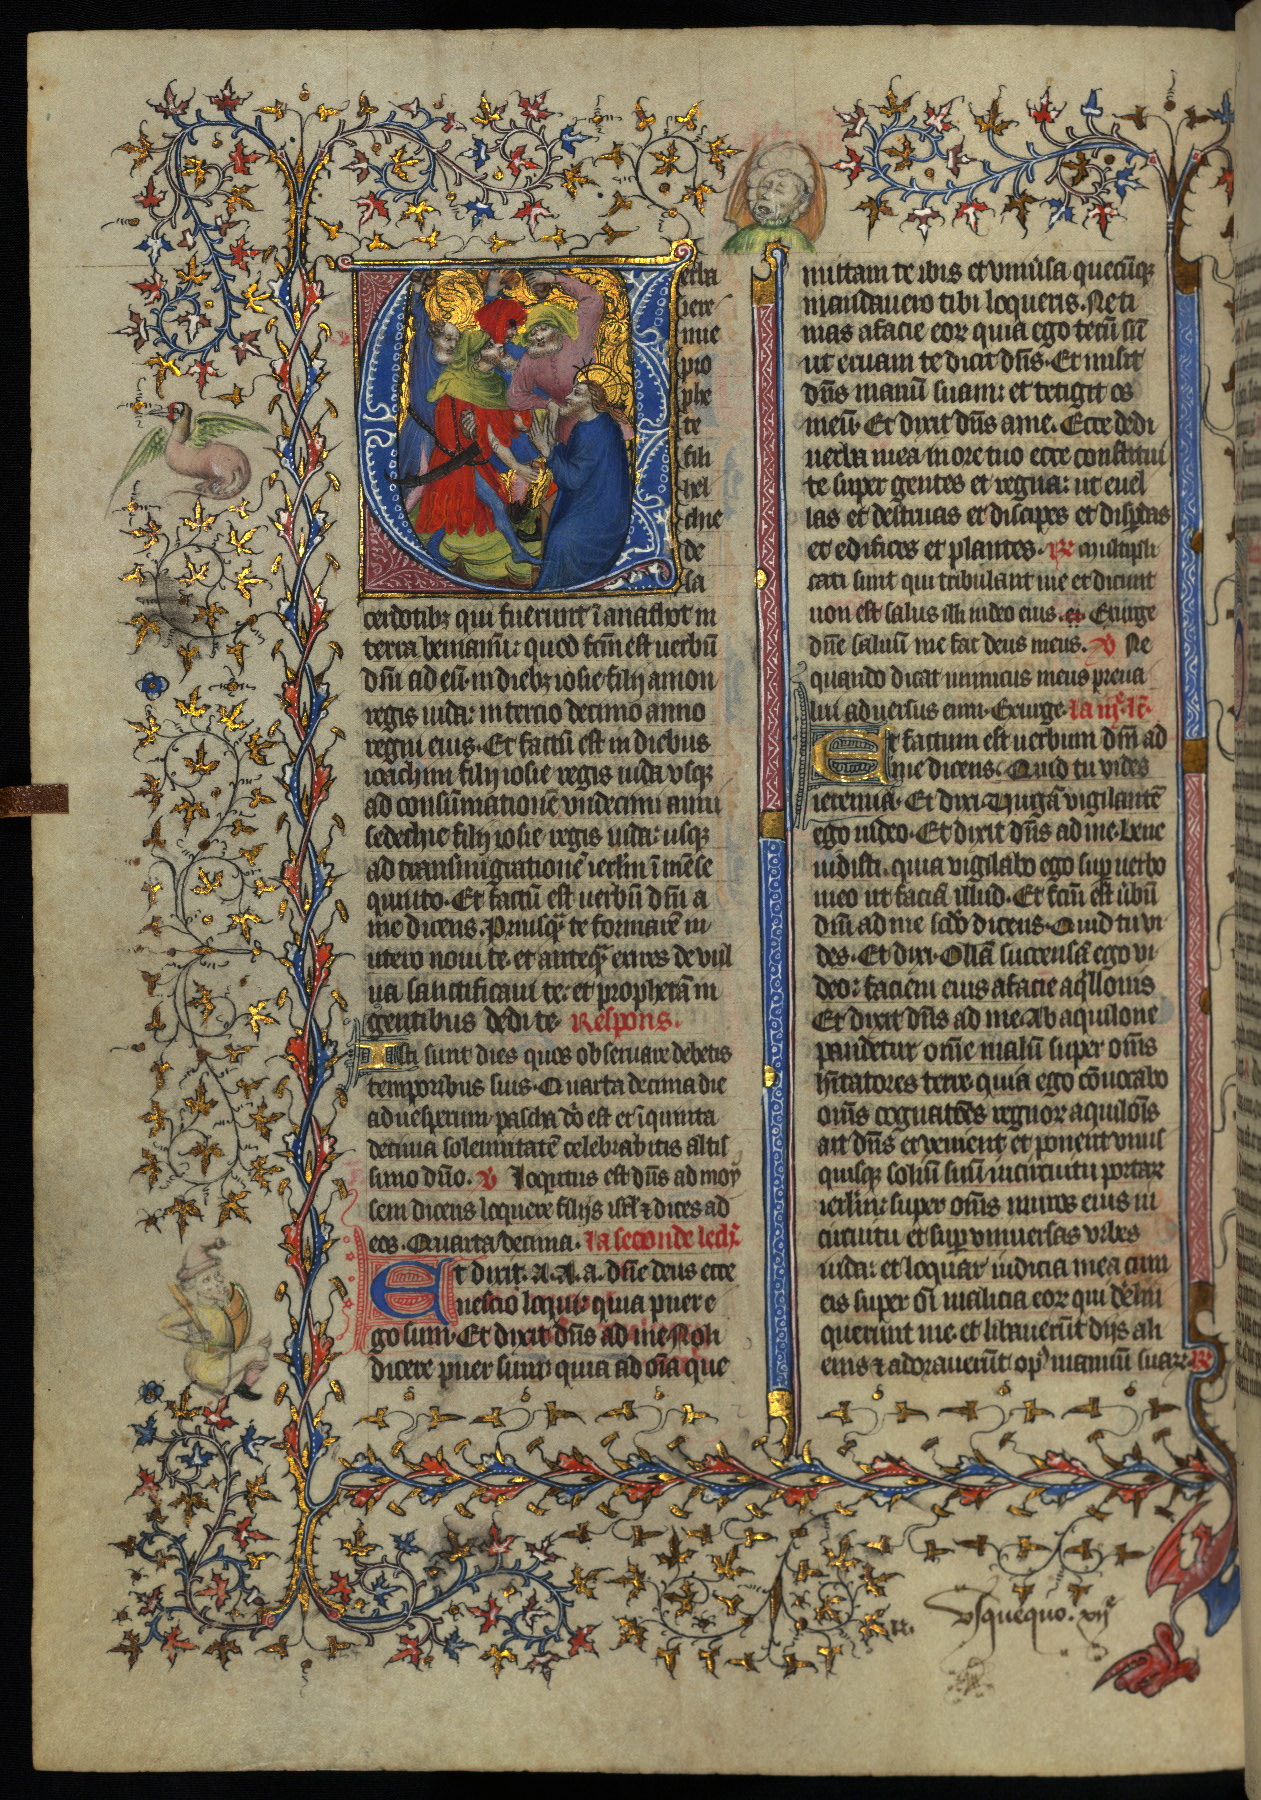 erba
iere
mie
pro
phe
te
fili
hel
chie
de
sa
cerdotibꝫ qui fuerunt ī anathot in
terra beniamī: quod fcm̄ est uerbū
dn̄i ad eū. in diebꝫ iosie filij amon
regis iuda: in tercio decimo anno
regni eius. Et factū est in diebus
ioachim filij iosie regis iuda vsqꝫ
ad consūmationē vndecimi anni
sedechie filij iosie regis iuda: usqꝫ
ad transmigrationē ierlm̄ ī mēse
quinto. Et factū est uerbū dn̄i a
me dicens. Priusq̄ te formarē in
utero noui te. et anteq̄ exires de vul
ua sanctificaui te: et prophetā in
gentibus dedi te. Respons.
Isti sunt dies quos obseruare debetis
temporibus suis. Quarta decima die
ad uesperum pascha dn̄i est et ī quinta
decima solemnitatē celebrabitis altis
simo dn̄o. v Loqutus est dn̄s ad moy
sem dicens loquere filijs isrl̄ ⁊ dices ad
eos. Quarta decima. la seconde lecḥ.
Et dixit. A. A. a. dn̄e deus ecce
nescio loqui: quia puer e
go sum. Et dixit dn̄s ad me. Noli
dicere puer sum: quia ad oīa que
mittam te ibis et vniūsa quecūqꝫ
mandauero tibi loqueris. Ne ti
mas a facie eoꝝ quia ego tecū sū
ut eruam te dicit dn̄s. Et misit
dn̄s manū suam: et tetigit os
meū. Et dixit dn̄s a me. Ecce dedi
uerba mea in ore tuo ecce constitui
te super gentes et regna: ut euel
las et destruas et discipes et disꝑdas
et edifices et plantes. R᷒ multipli
cati sunt qui tribulant me et dicunt
non est salus illi in deo eius. Exurge
dn̄e saluū me fac deus meus. v Ne
quando dicat inimicus meus preua
lui aduersus eum. Exurge. la iij. lc̄.
Et factum est uerbum dn̄i ad
me dicens. Quid tu vides
ieremia. Et dixi. Uirgā vigilantē
ego uideo. Et dixit dn̄s ad me. bene
uidisti. quia vigilabo ego suꝑ uerbo
meo ut faciā illud. Et fcm̄ est ūbū
dn̄i ad me scd̄o dicens. Quid tu vi
des. Et dixi. Ollā succensā ego vi
deo: faciem eius a facie aq̄llonis
Et dixit dn̄s ad me. Ab aquilone
pandetur om̄e malū super om̄s
hītatores terre quia ego cōuocabo
om̄s cognatōes regnoꝝ aquilōis
ait dn̄s et venient et ponent vnus
quisqꝫ soliū suū in circuitu portaꝝ
ierlm̄: super om̄s muros eius in
circuitu et suꝑ vniuersas vrbes
iuda: et loquar iudicia mea cum
eis super oī malicia eoꝝ qui dēlin
querunt me. et libauerūt dijs ali
enis ⁊ adorauerūt op᷒ manuū suaꝝ. R᷒
vsquequo. xij